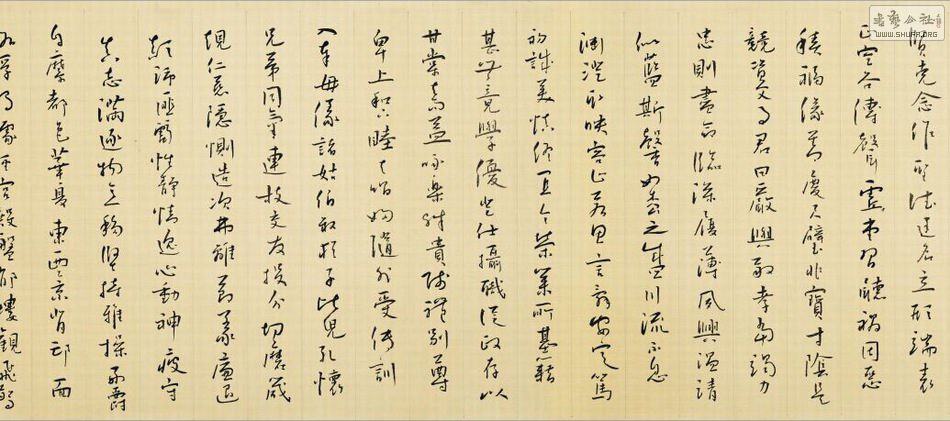 書藝公社
WWW.SHUFA.ORG
賢克念作聖德建名立形端表
正空谷傳聲虛堂習聽禍因惡
積福緣善慶尺璧非寶寸陰是
競資父事君曰嚴與敬孝當竭力
忠則盡命臨深履薄夙興溫凊
似蘭斯馨如松之盛川流不息
淵澄取映容止若思言辭安定篤
初誠美慎終宜令榮業所基籍
甚無竟學優登仕攝職從政存以
甘棠去而益詠樂殊貴賤禮別尊
卑上和下睦夫唱婦隨外受傅訓
入奉母儀諸姑伯叔猶子比兒孔懷
兄弟同氣連枝交友投分切磨箴
規仁慈隱惻造次弗離節義廉退
顛沛匪虧性靜情逸心動神疲守
真志滿逐物意移堅持雅操好爵
自縻都邑華夏東西二京背邙面
洛浮渭據涇宮殿盤鬱樓觀飛驚